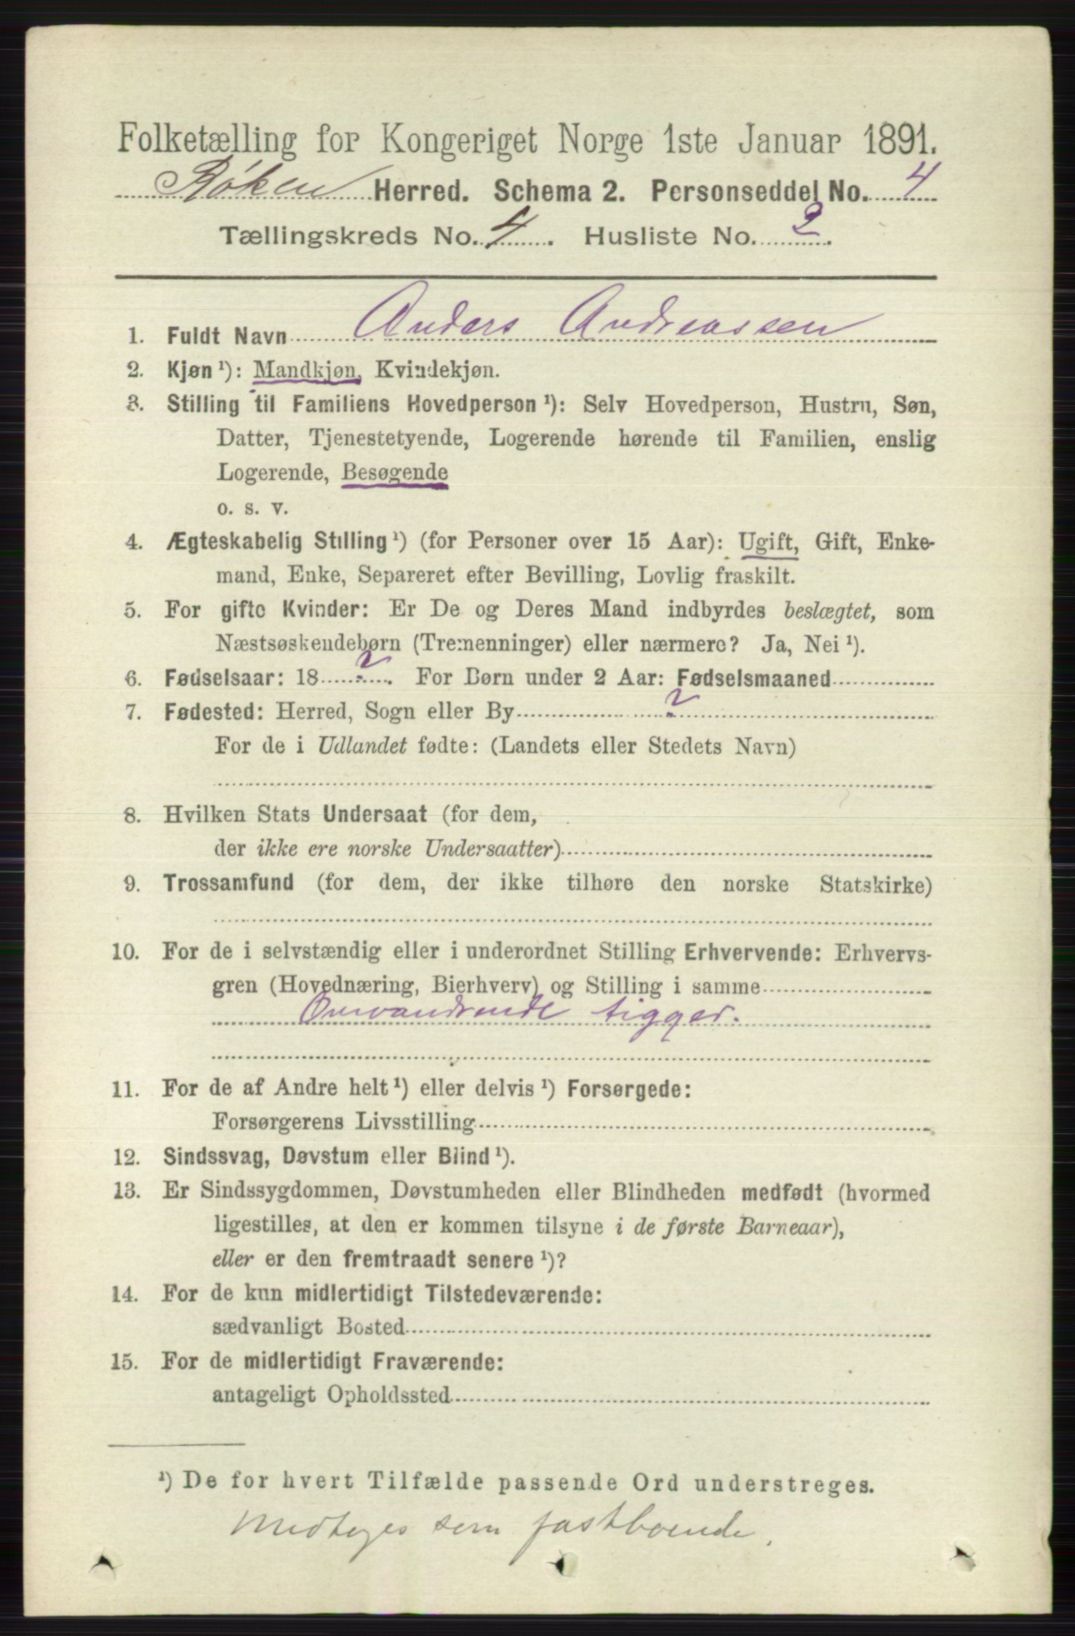 Folketælling for Kongeriget Norge 1ste Januar 1891.
Røken Herred. Schema 2. Personseddel No. 4
Tællingskreds No. 4. Husliste No. 2.
1. Fuldt Navn Anders Andreassen
2. Kjøn ¹): Mandkjøn, Kvindekjøn.
3. Stilling til Familiens Hovedperson ¹): Selv Hovedperson, Hustru, Søn,
Datter, Tjenestetyende, Logerende hørende til Familien, enslig
Logerende, Besøgende
o. s. v.
4. Ægteskabelig Stilling ¹) (for Personer over 15 Aar): Ugift, Gift, Enke-
mand, Enke, Separeret efter Bevilling, Lovlig fraskilt.
5. For gifte Kvinder: Er De og Deres Mand indbyrdes beslægtet, som
Næstsøskendebørn (Tremenninger) eller nærmere? Ja, Nei ¹).
6. Fødselsaar: 18 ?. For Børn under 2 Aar: Fødselsmaaned
7. Fødested: Herred, Sogn eller By ?
For de i Udlandet fødte: (Landets eller Stedets Navn)
8. Hvilken Stats Undersaat (for dem,
der ikke ere norske Undersaatter)
9. Trossamfund (for dem, der ikke tilhøre den norske Statskirke)
10. For de i selvstændig eller i underordnet Stilling Erhvervende: Erhvervs-
gren (Hovednæring, Bierhverv) og Stilling i samme
Omvandrende tigger.
11. For de af Andre helt ¹) eller delvis ¹) Forsørgede:
Forsørgerens Livsstilling
12. Sindssvag, Døvstum eller Blind ¹).
13. Er Sindssygdommen, Døvstumheden eller Blindheden medfødt (hvormed
ligestilles, at den er kommen tilsyne i de første Barneaar),
eller er den fremtraadt senere ¹)?
14. For de kun midlertidigt Tilstedeværende:
sædvanligt Bosted
15. For de midlertidigt Fraværende:
antageligt Opholdssted
¹) De for hvert Tilfælde passende Ord understreges.
Medtages som fastboende.